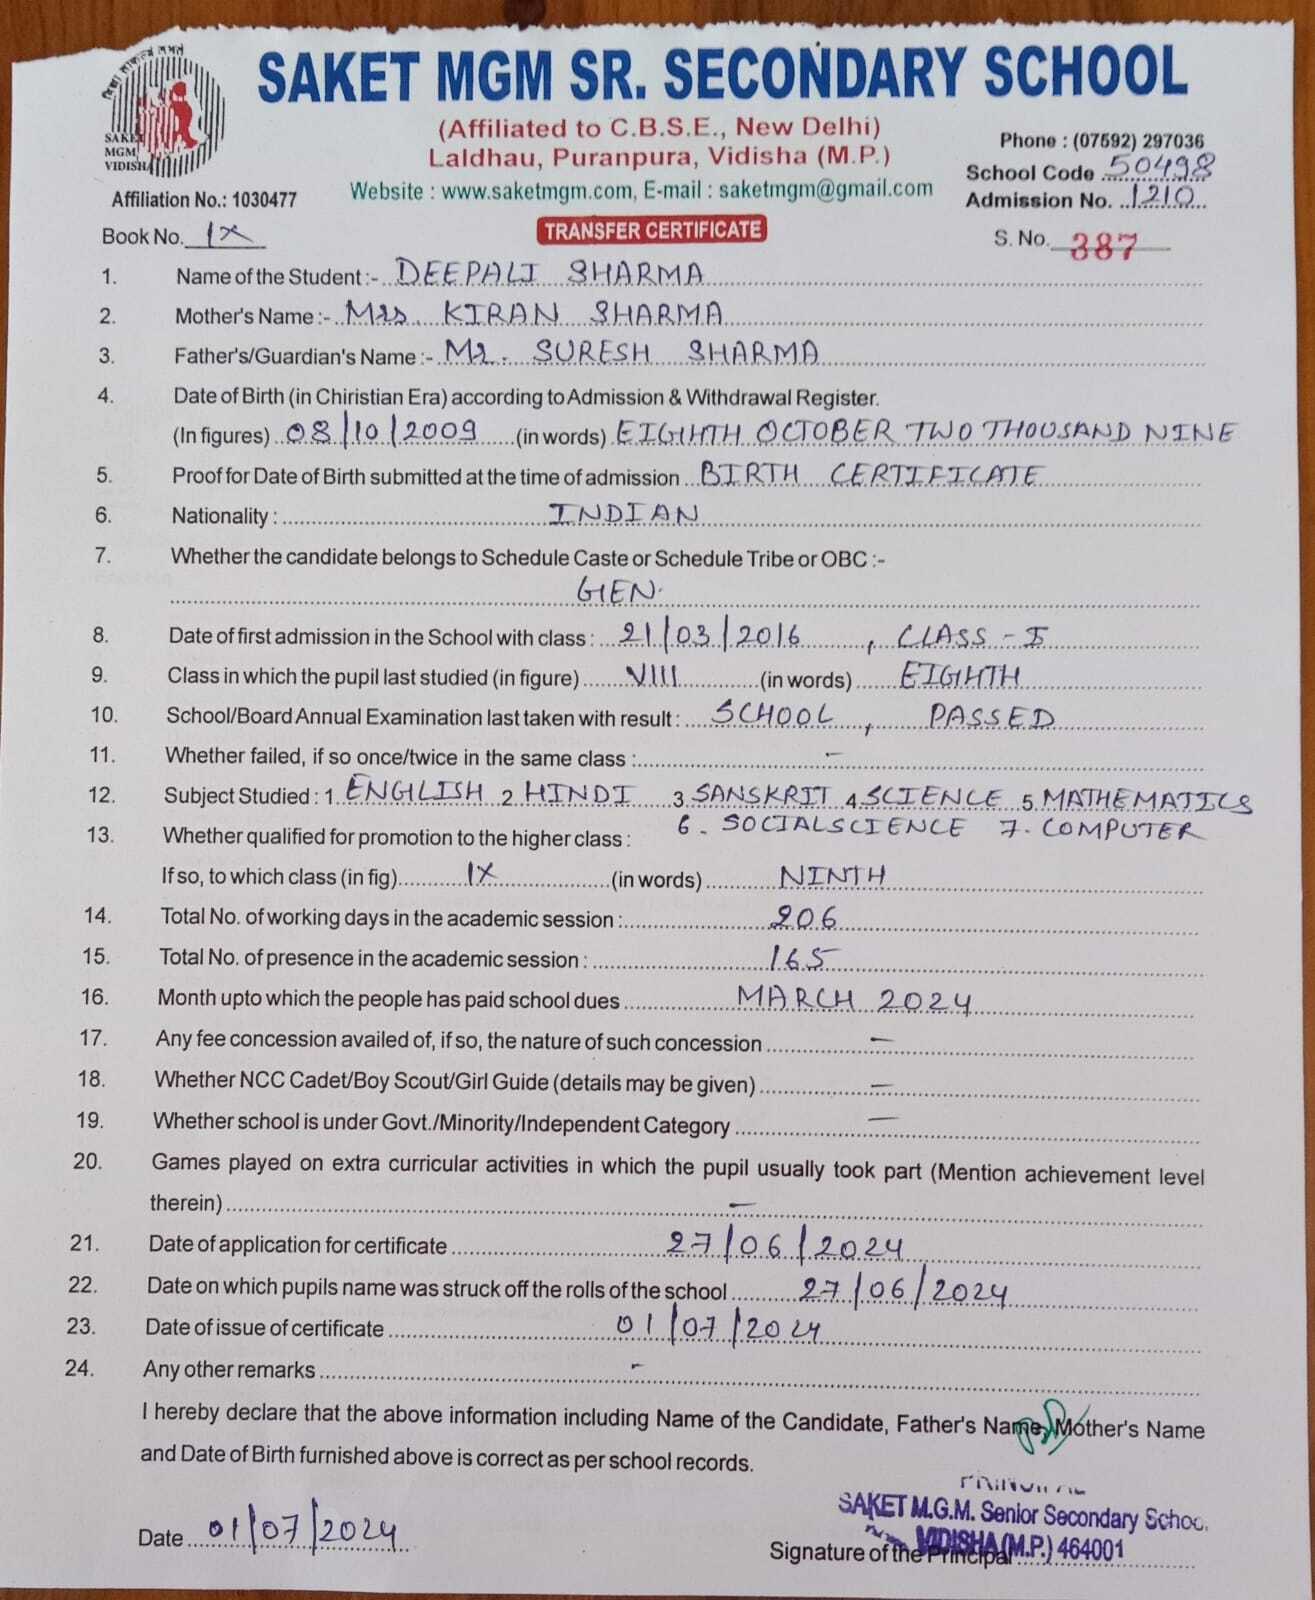 SAKET MGM SR. SECONDARY SCHOOL
SAKET
MGM
VIDISHA
(Affiliated to C.B.S.E., New Delhi)
Laldhau, Puranpura, Vidisha (M.P.)
Website : www.saketmgm.com, E-mail : saketmgm@gmail.com
Phone : (07592) 297036
School Code 50498
Admission No. 1210
Affiliation No.: 1030477
Book No. IX
TRANSFER CERTIFICATE
S. No. 387
1. Name of the Student :- DEEPALI SHARMA
2. Mother's Name :- Mrs. KIRAN SHARMA
3. Father's/Guardian's Name :- Mr. SURESH SHARMA
4. Date of Birth (in Chiristian Era) according to Admission & Withdrawal Register.
(In figures) 08/10/2009 (in words) EIGHTH OCTOBER TWO THOUSAND NINE
5. Proof for Date of Birth submitted at the time of admission BIRTH CERTIFICATE
6. Nationality : INDIAN
7. Whether the candidate belongs to Schedule Caste or Schedule Tribe or OBC :-
GEN.
8. Date of first admission in the School with class : 21/03/2016, CLASS - I
9. Class in which the pupil last studied (in figure) VIII (in words) EIGHTH
10. School/Board Annual Examination last taken with result : SCHOOL, PASSED
11. Whether failed, if so once/twice in the same class : -
12. Subject Studied : 1. ENGLISH 2. HINDI 3. SANSKRIT 4. SCIENCE 5. MATHEMATICS
6. SOCIALSCIENCE 7. COMPUTER
13. Whether qualified for promotion to the higher class :
If so, to which class (in fig) IX (in words) NINTH
14. Total No. of working days in the academic session : 206
15. Total No. of presence in the academic session : 165
16. Month upto which the people has paid school dues MARCH 2024
17. Any fee concession availed of, if so, the nature of such concession -
18. Whether NCC Cadet/Boy Scout/Girl Guide (details may be given) -
19. Whether school is under Govt./Minority/Independent Category -
20. Games played on extra curricular activities in which the pupil usually took part (Mention achievement level
therein) -
21. Date of application for certificate 27/06/2024
22. Date on which pupils name was struck off the rolls of the school 27/06/2024
23. Date of issue of certificate 01/07/2024
24. Any other remarks -
I hereby declare that the above information including Name of the Candidate, Father's Name, Mother's Name
and Date of Birth furnished above is correct as per school records.
PRINCIPAL
SAKET M.G.M. Senior Secondary School
VIDISHA (M.P.) 464001
Date 01/07/2024
Signature of the Principal